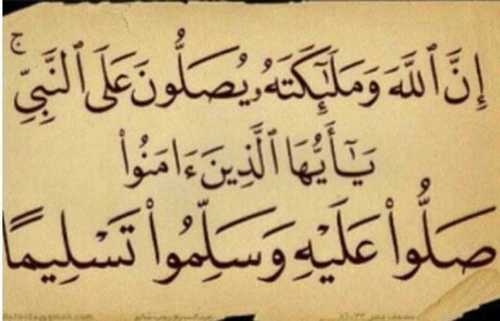 إِنَّ ٱللَّهَ وَمَلَٰٓئِكَتَهُۥ يُصَلُّونَ عَلَى ٱلنَّبِىِّ ۚ
يَٰٓأَيُّهَا ٱلَّذِينَ ءَامَنُوا۟
صَلُّوا۟ عَلَيْهِ وَسَلِّمُوا۟ تَسْلِيمًا